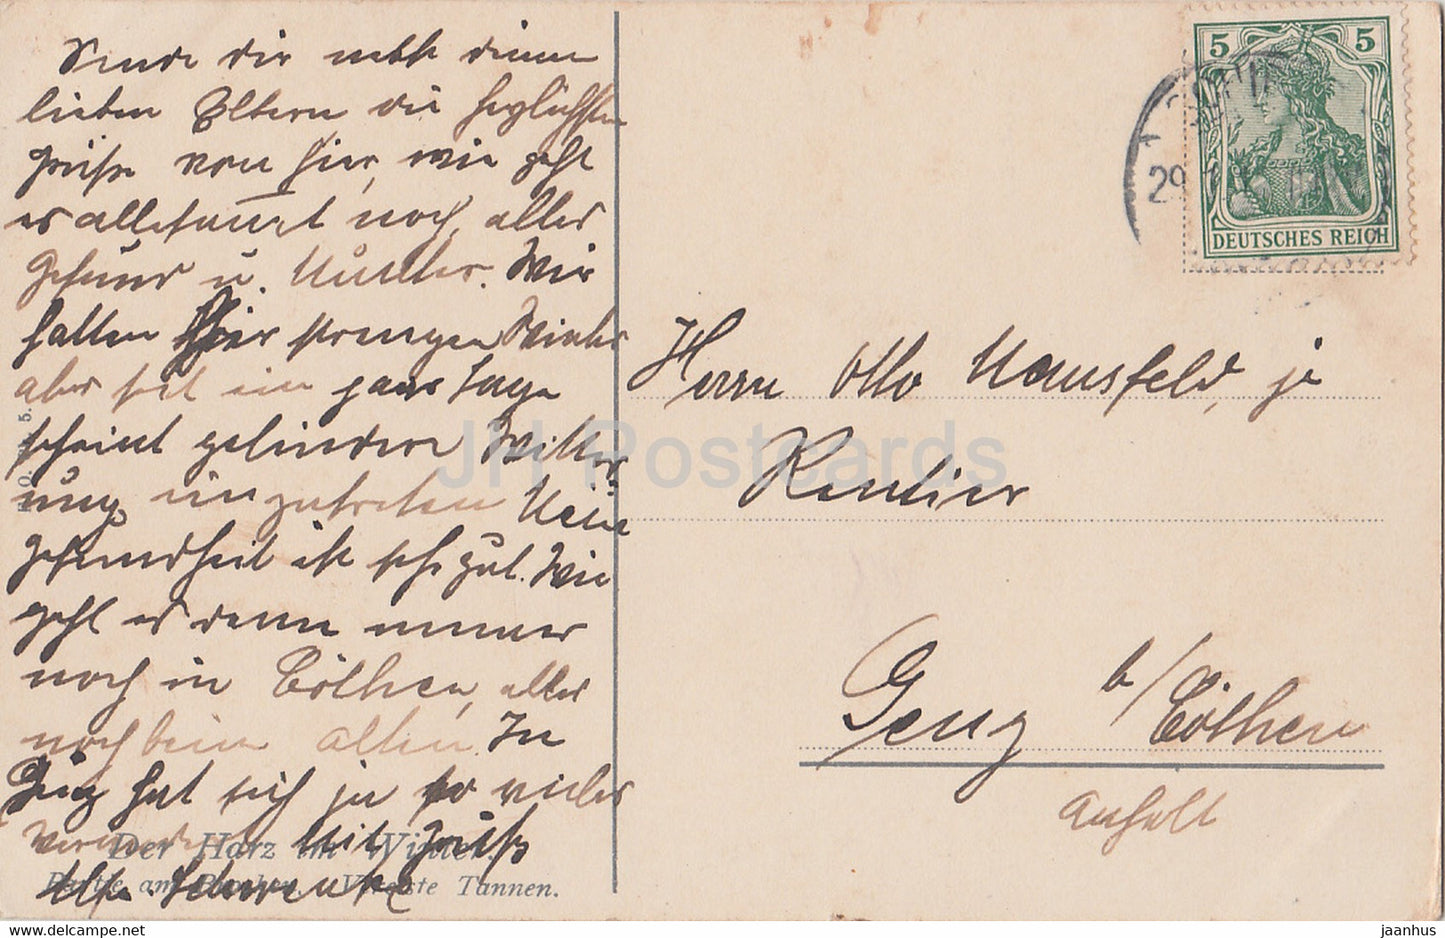 Sende dir nebst deinen
lieben Eltern die herzlichsten
Grüße von hier, wie geht
es allesamt noch, alles
Gesund u. Munter. Wir
hatten hier strengen Winter
aber seit ein paar Tage
scheint gelindere Witter
ung einzutreten Meine
gesundheit ist sehr gut. Wie
geht es denn immer
noch in Cöthen, alles
noch beim alten. In
Genz hat sich ja so vieles
verändert Mit Gruß
Otto
Der Harz im Winter
Partie am Brocken. Vereiste Tannen.
5.
5 5
DEUTSCHES REICH
29
Herrn Otto Mansfeld, je
Rentier
Genz b/ Cöthen
Anhalt
JH Postcards
jaanhus